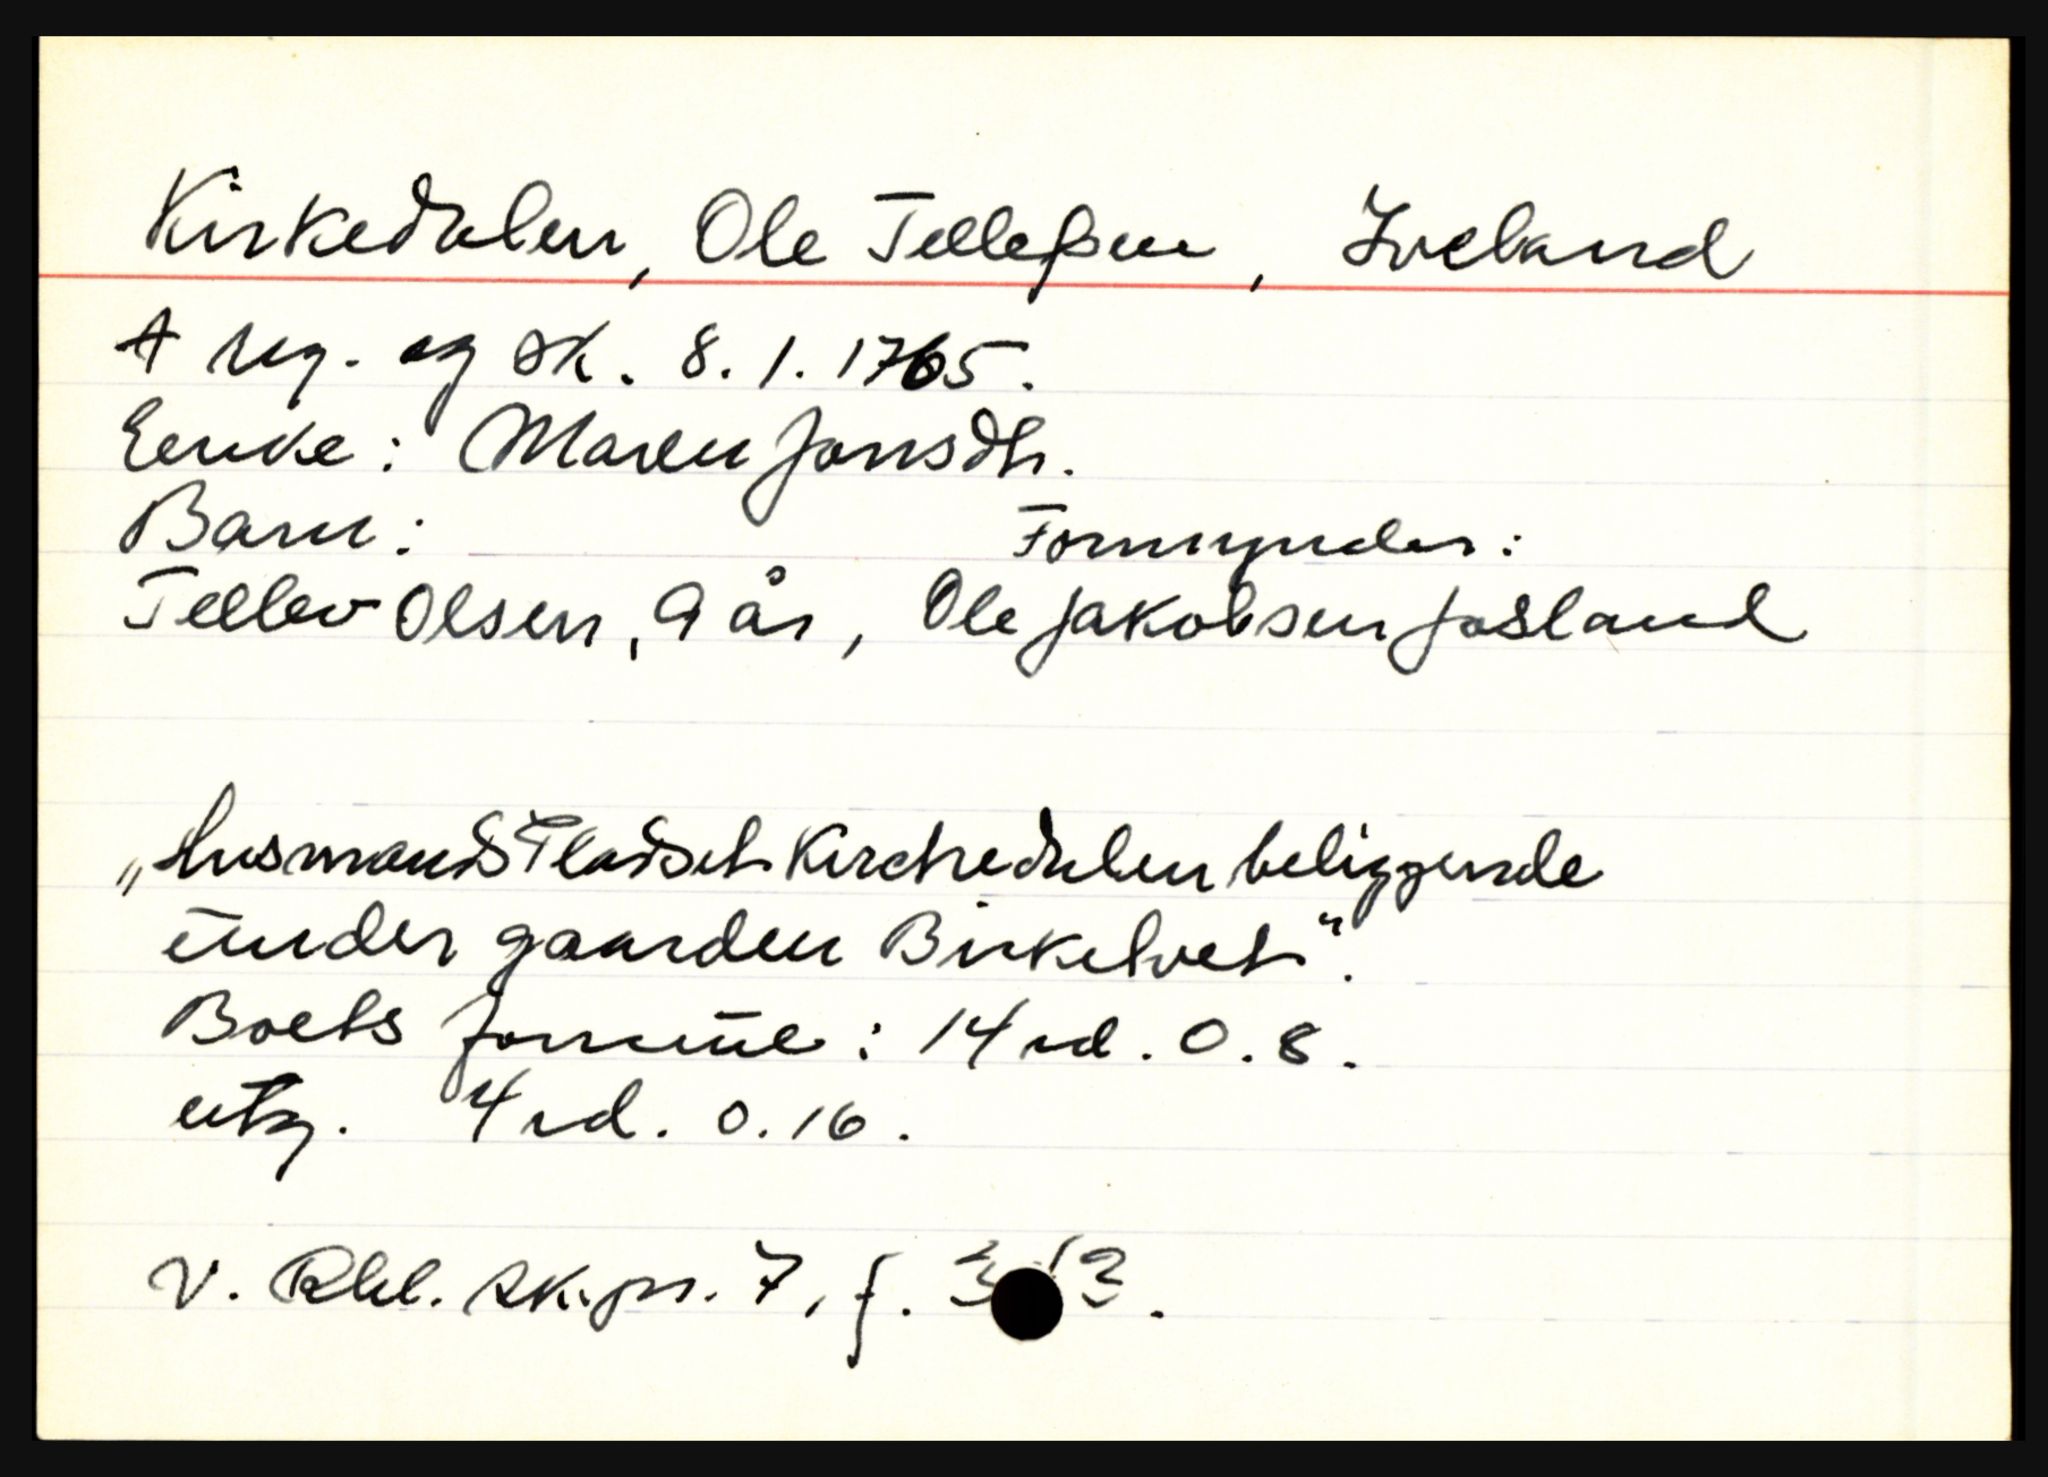 Kirkedalen, Ole Telleßen, Iveland
† reg. og sk. 8.1.1765.
Encke: Maren Jonsdtr.
Barn: Formynder:
Tellev Olsen, 9 år, Ole Jakobsen Josland
„HusmandsPladset Kirchedalen beliggende
ūnder gaarden Birketvet".
Boets formūe: 14 rd. 0. 8.
utg. 4 rd. 0. 16.
V. Rbl. sk.pr. 7, f.